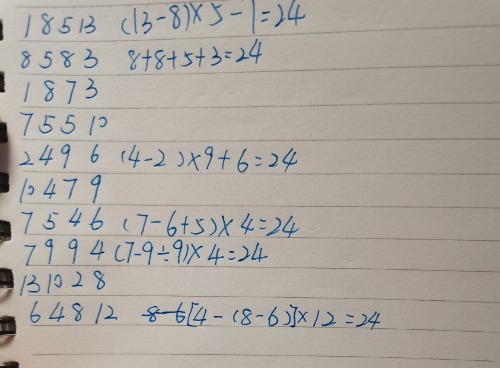 1 8 5 13 (13-8)×5-1=24
8 5 8 3 8+8+5+3=24
1 8 7 3
7 5 5 10
2 4 9 6 (4-2)×9+6=24
10 4 7 9
7 5 4 6 (7-6+5)×4=24
7 9 9 4 (7-9÷9)×4=24
13 10 2 8
6 4 8 12 8-6[4-(8-6)]×12=24